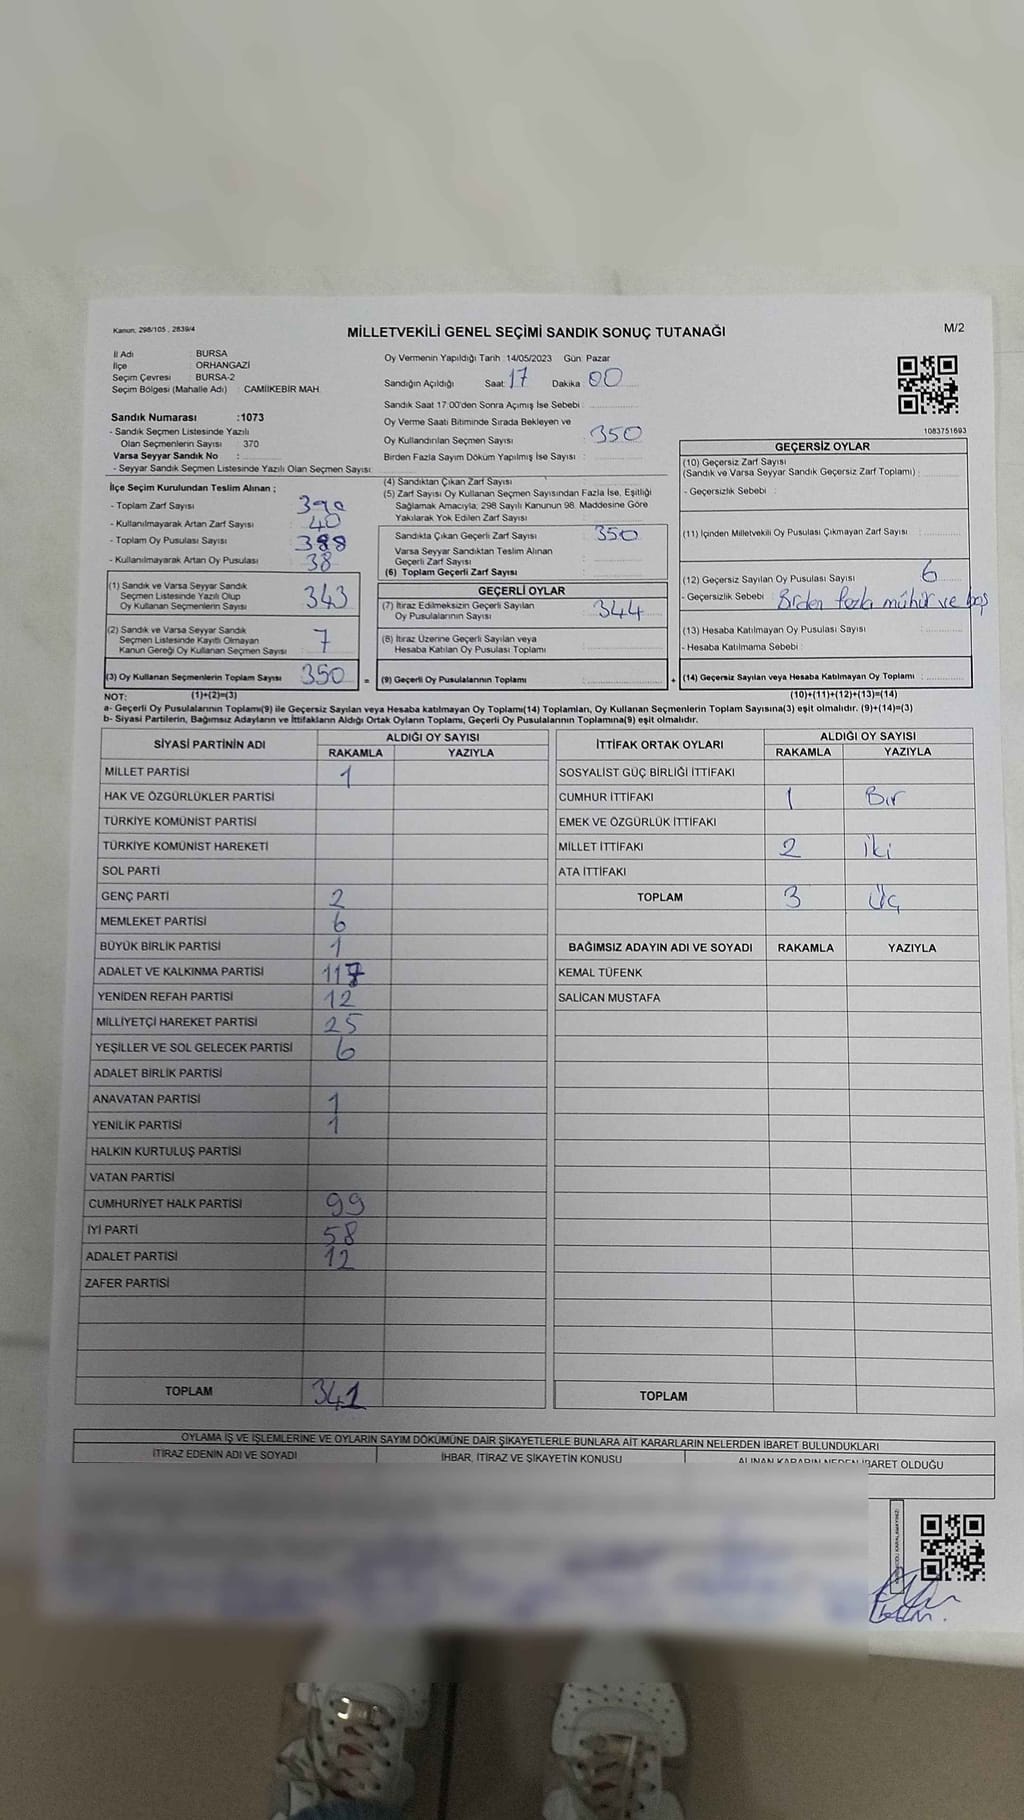 Kanun, 298/105 , 2839/4
MİLLETVEKİLİ GENEL SEÇİMİ SANDIK SONUÇ TUTANAĞI
M/2
İl Adı : BURSA
İlçe : ORHANGAZİ
Seçim Çevresi : BURSA-2
Seçim Bölgesi (Mahalle Adı) : CAMİİKEBİR MAH.
Sandık Numarası :1073
- Sandık Seçmen Listesinde Yazılı
Olan Seçmenlerin Sayısı 370
Varsa Seyyar Sandık No :
- Seyyar Sandık Seçmen Listesinde Yazılı Olan Seçmen Sayısı:
Oy Vermenin Yapıldığı Tarih :14/05/2023 Gün: Pazar
Sandığın Açıldığı Saat: 17 Dakika : 00
Sandık Saat 17:00'den Sonra Açımış İse Sebebi :
Oy Verme Saati Bitiminde Sırada Bekleyen ve
Oy Kullandırılan Seçmen Sayısı : 350
Birden Fazla Sayım Döküm Yapılmış İse Sayısı :
1083751693
İlçe Seçim Kurulundan Teslim Alınan ;
- Toplam Zarf Sayısı : 390
- Kullanılmayarak Artan Zarf Sayısı : 40
- Toplam Oy Pusulası Sayısı : 388
- Kullanılmayarak Artan Oy Pusulası : 38
(1) Sandık ve Varsa Seyyar Sandık
Seçmen Listesinde Yazılı Olup
Oy Kullanan Seçmenlerin Sayısı : 343
(2) Sandık ve Varsa Seyyar Sandık
Seçmen Listesinde Kayıtlı Olmayan
Kanun Gereği Oy Kullanan Seçmen Sayısı : 7
(3) Oy Kullanan Seçmenlerin Toplam Sayısı : 350 =
(4) Sandıktan Çıkan Zarf Sayısı :
(5) Zarf Sayısı Oy Kullanan Seçmen Sayısından Fazla İse, Eşitliği
Sağlamak Amacıyla; 298 Sayılı Kanunun 98. Maddesine Göre
Yakılarak Yok Edilen Zarf Sayısı :
Sandıkta Çıkan Geçerli Zarf Sayısı : 350
Varsa Seyyar Sandıktan Teslim Alınan
Geçerli Zarf Sayısı :
(6) Toplam Geçerli Zarf Sayısı :
GEÇERLİ OYLAR
(7) İtiraz Edilmeksizin Geçerli Sayılan
Oy Pusulalarının Sayısı : 344
(8) İtiraz Üzerine Geçerli Sayılan veya
Hesaba Katılan Oy Pusulası Toplamı :
(9) Geçerli Oy Pusulalarının Toplamı : +
GEÇERSİZ OYLAR
(10) Geçersiz Zarf Sayısı
(Sandık ve Varsa Seyyar Sandık Geçersiz Zarf Toplamı) :
- Geçersizlik Sebebi :
(11) İçinden Milletvekili Oy Pusulası Çıkmayan Zarf Sayısı :
(12) Geçersiz Sayılan Oy Pusulası Sayısı : 6
- Geçersizlik Sebebi : Birden fazla mühür ve boş
(13) Hesaba Katılmayan Oy Pusulası Sayısı :
- Hesaba Katılmama Sebebi :
(14) Geçersiz Sayılan veya Hesaba Katılmayan Oy Toplamı :
NOT: (1)+(2)=(3) (10)+(11)+(12)+(13)=(14)
a- Geçerli Oy Pusulalarının Toplamı(9) ile Geçersiz Sayılan veya Hesaba katılmayan Oy Toplamı(14) Toplamları, Oy Kullanan Seçmenlerin Toplam Sayısına(3) eşit olmalıdır. (9)+(14)=(3)
b- Siyasi Partilerin, Bağımsız Adayların ve İttifakların Aldığı Ortak Oyların Toplamı, Geçerli Oy Pusulalarının Toplamına(9) eşit olmalıdır.
SİYASİ PARTİNİN ADI ALDIĞI OY SAYISI
RAKAMLA YAZIYLA
MİLLET PARTİSİ 1
HAK VE ÖZGÜRLÜKLER PARTİSİ
TÜRKİYE KOMÜNİST PARTİSİ
TÜRKİYE KOMÜNİST HAREKETİ
SOL PARTİ
GENÇ PARTİ 2
MEMLEKET PARTİSİ 6
BÜYÜK BİRLİK PARTİSİ 1
ADALET VE KALKINMA PARTİSİ 117
YENİDEN REFAH PARTİSİ 12
MİLLİYETÇİ HAREKET PARTİSİ 25
YEŞİLLER VE SOL GELECEK PARTİSİ 6
ADALET BİRLİK PARTİSİ
ANAVATAN PARTİSİ 1
YENİLİK PARTİSİ 1
HALKIN KURTULUŞ PARTİSİ
VATAN PARTİSİ
CUMHURİYET HALK PARTİSİ 99
İYİ PARTİ 58
ADALET PARTİSİ 12
ZAFER PARTİSİ
TOPLAM 341
İTTİFAK ORTAK OYLARI ALDIĞI OY SAYISI
RAKAMLA YAZIYLA
SOSYALİST GÜÇ BİRLİĞİ İTTİFAKI
CUMHUR İTTİFAKI 1 Bir
EMEK VE ÖZGÜRLÜK İTTİFAKI
MİLLET İTTİFAKI 2 İki
ATA İTTİFAKI
TOPLAM 3 Üç
BAĞIMSIZ ADAYIN ADI VE SOYADI RAKAMLA YAZIYLA
KEMAL TÜFENK
SALİCAN MUSTAFA
TOPLAM
OYLAMA İŞ VE İŞLEMLERİNE VE OYLARIN SAYIM DÖKÜMÜNE DAİR ŞİKAYETLERLE BUNLARA AİT KARARLARIN NELERDEN İBARET BULUNDUKLARI
İTİRAZ EDENİN ADI VE SOYADI İHBAR, İTİRAZ VE ŞİKAYETİN KONUSU ALINAN KARARIN NEDEN İBARET OLDUĞU